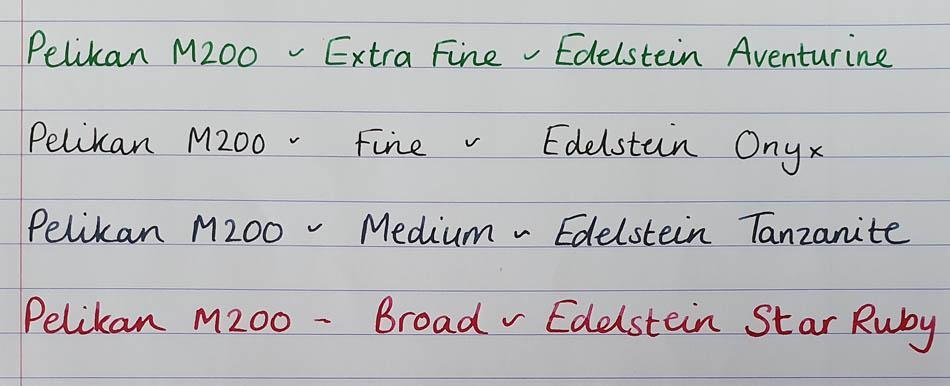 Pelikan M200 ~ Extra Fine ~ Edelstein Aventurine
Pelikan M200 ~ Fine ~ Edelstein Onyx
Pelikan M200 ~ Medium ~ Edelstein Tanzanite
Pelikan M200 ~ Broad ~ Edelstein Star Ruby